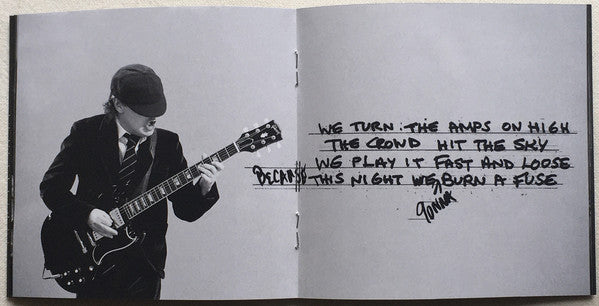 WE TURN THE AMPS ON HIGH
THE CROWD HIT THE SKY
WE PLAY IT FAST AND LOOSE
BECAUSE THIS NIGHT WE GONNA BURN A FUSE